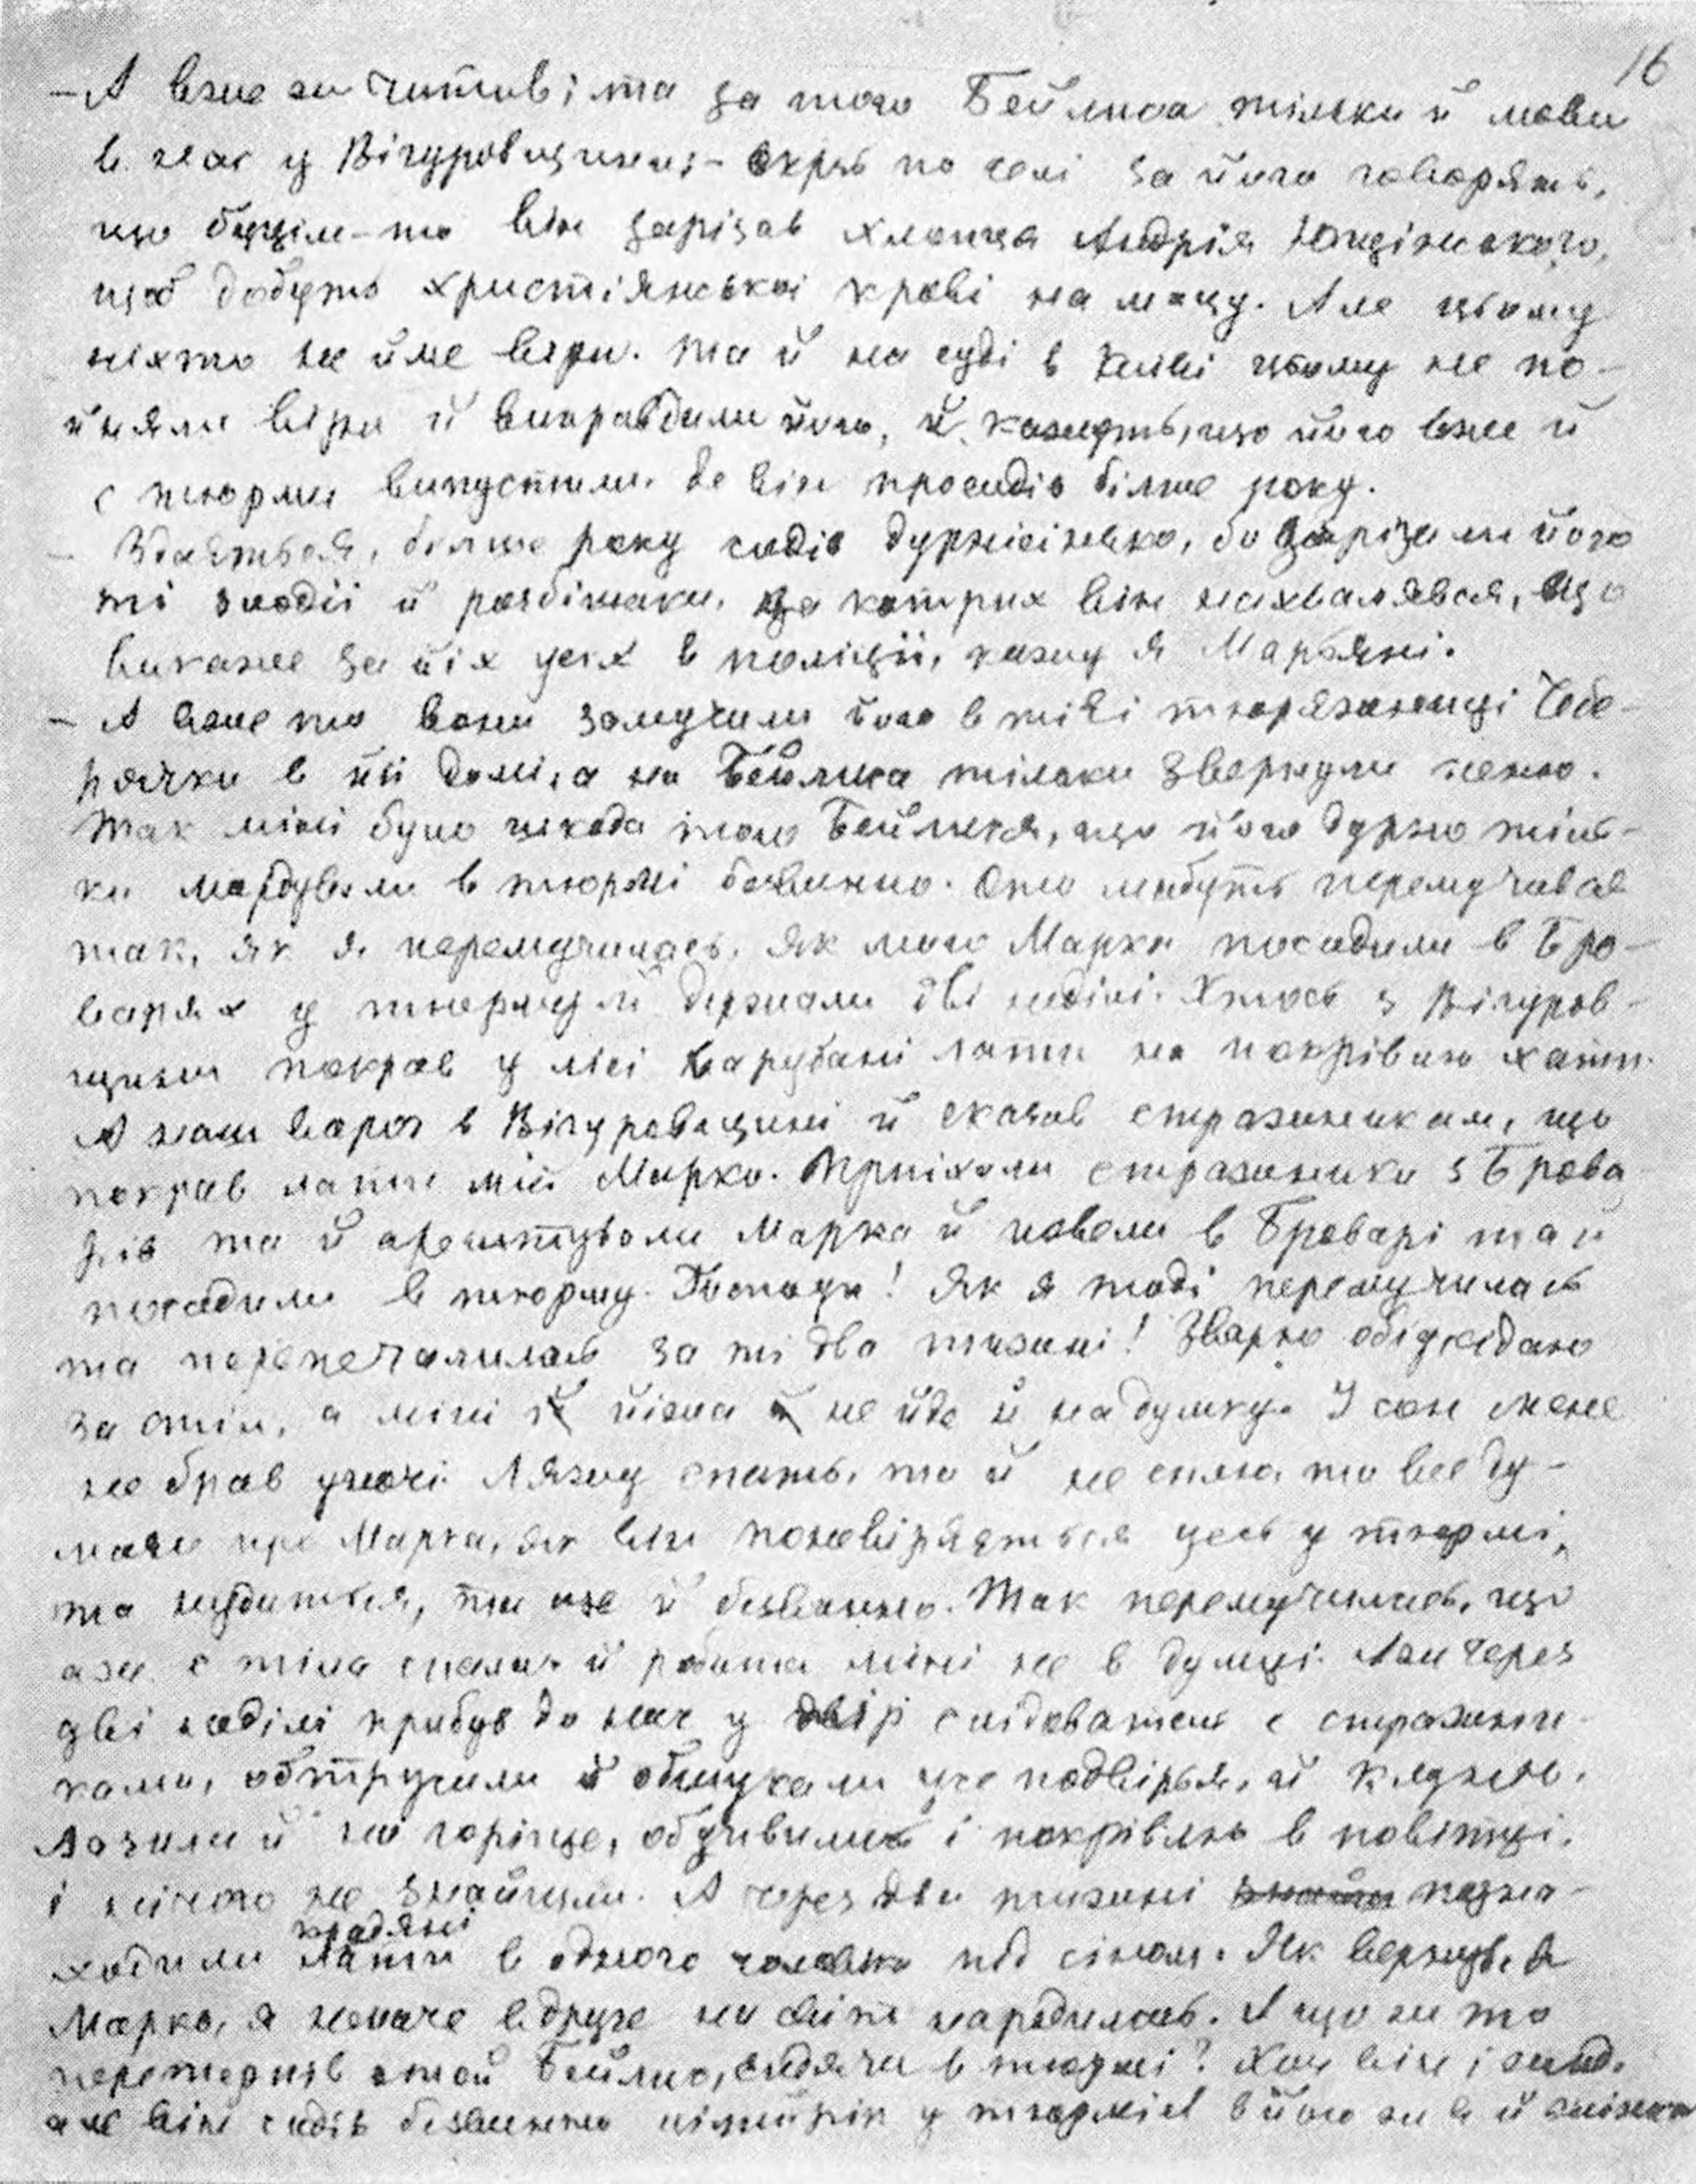 16
– А вже ж читав, та за того Бейлиса тільки й мови
в нас у Вігуровщині; – скрізь по селі за його говорять,
що буцім-то він зарізав хлопця Андрія Ющінського,
щоб добуть христіянської крові на мацу. Але цьому
ніхто не йме віри. Та й на суді в Київі цьому не по-
йняли віри й виправдили його, й кажуть, що його вже й
с тюрми випустили, де він просидів більше року.
– Здається, більше року сидів дурнісінько, бо зарізали його
ті злодії й розбішаки, за котрих він нахвалявся, що
викаже за їіх усіх в поліції, кажу я Марьяні.
– А вже то вони замучили його в тієї Чебе-
рячки в їй домі, а на Бейлиса тільки звернули
Так міні було шкода того Бейлиса, що його дурно тіль-
ки мордували в тюрмі безвинно. Ото мабуть перемучився
так, як я перемучилась, як мого Марка посадили в Бро-
варях у тюрму й держали дві неділі. Хтось з Вігуров-
щини покрав у лісі нарубані лати на покрівлю хати.
А наш ворог в Вігуровщині й сказав стражникам, що
покрав лати мій Марко. Приїхали стражники з Брова-
рів та й арештували Марка й повели в Броварі та й
посадили в тюрму. Господи! Як я тоді перемучилась
та перепечалилась за ті два тижні! Зварю обід, сідаю
за стіл, а міні їжа не йде й на думку. І сон мене
не брав уночі. Ляжу спать, та й не сплю, та все ду-
маю про Марка, як він поневіряється десь у тюрмі,
та нудиться, та ще й безвинно. Так перемучилась, що
аж с тіла спала й робота міні не в думці. Аж через
дві неділі прибув до нас у двір слідователь с стражни-
ками, обтрусили й обшукали усе подвірья, й клуню.
Лазили й на горіще, обдивились і покрівлю в повітці.
і нічого не знайшли. А через два тижні позна-
ходили крадяні лати в одного чоловіка під сіном. Як вернувся
Марко, я неначе вдруге на світ народилась. А що ж то
перетерпів отой Бейлис, сидячи в тюрмі? Хоч він і жид,
але він сидів безвинно цілий рік у тюрмі. В його ж є й жінка